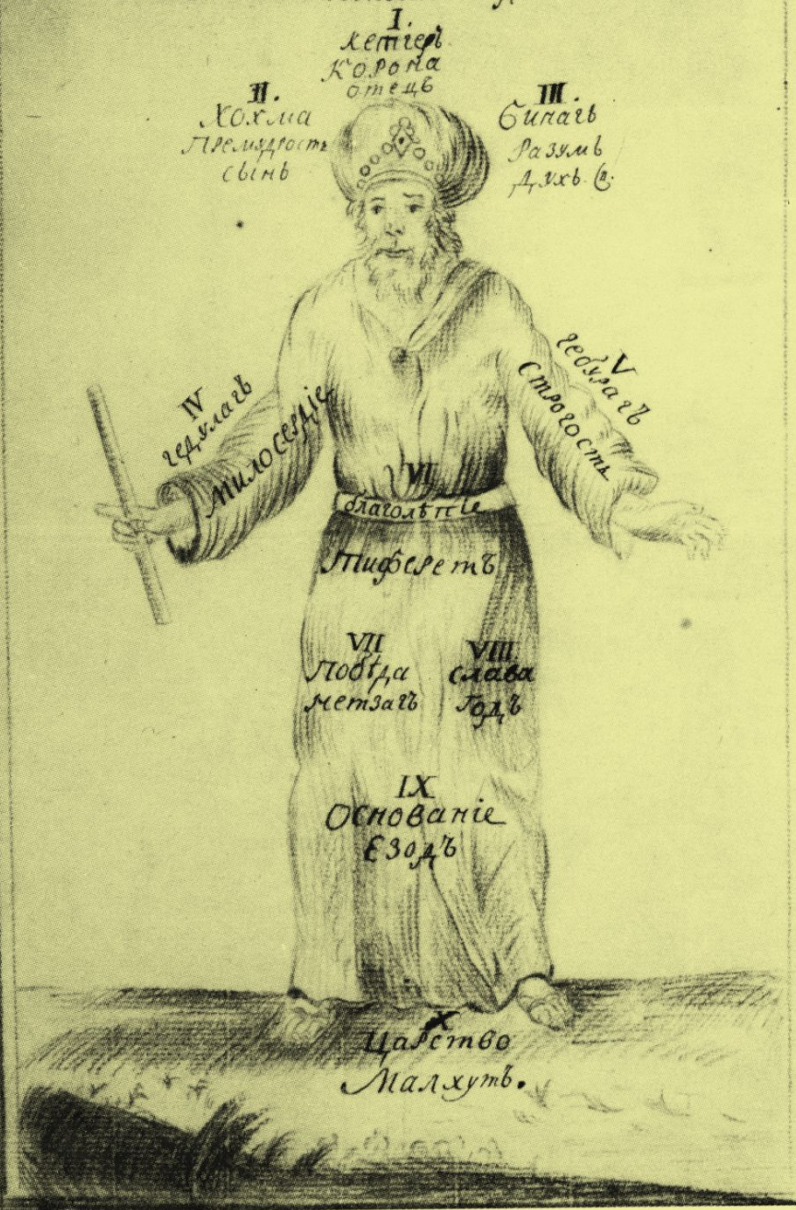 I.
Кетгеръ
Корона
отецъ
II.
Хохма
Премудрость
сынъ
III.
Бинагъ
Разумъ
Духъ
IV
гедулагъ
Милосердіе
V
гебурагъ
строгость
VI
благолѣпіе
Тиферетъ
VII
Побѣда
нетзагъ
VIII.
слава
годъ
IX
Основаніе
Езодъ
X
Царство
Малхутъ.